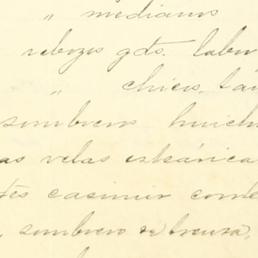 " medianos
rebozos gds. labr
" chicos, 
sombrero huich
as velas esteárica
casimir corte
, sombrero de trenza,